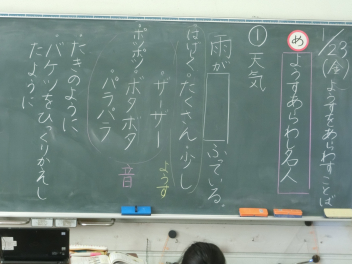 1/23(金)ようすをあらわすことば
め
ようすあらわし名人
① 天気
雨が　ふっている。
はげしく たくさん 少し
ようす
ザーザー
ポツポツ ボタボタ
パラパラ
音
たきのように
バケツをひっくりかえし
たように